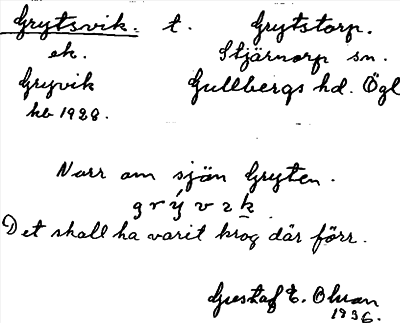 Grytsvik. t. Grytstorp.
ek. Stjärnorp sn.
Gryvik Gullbergs hd. Ögl
hb 1928.
Norr om sjön Gryten.
Det skall ha varit krog där förr.
Gustaf E. Olsson
1936.